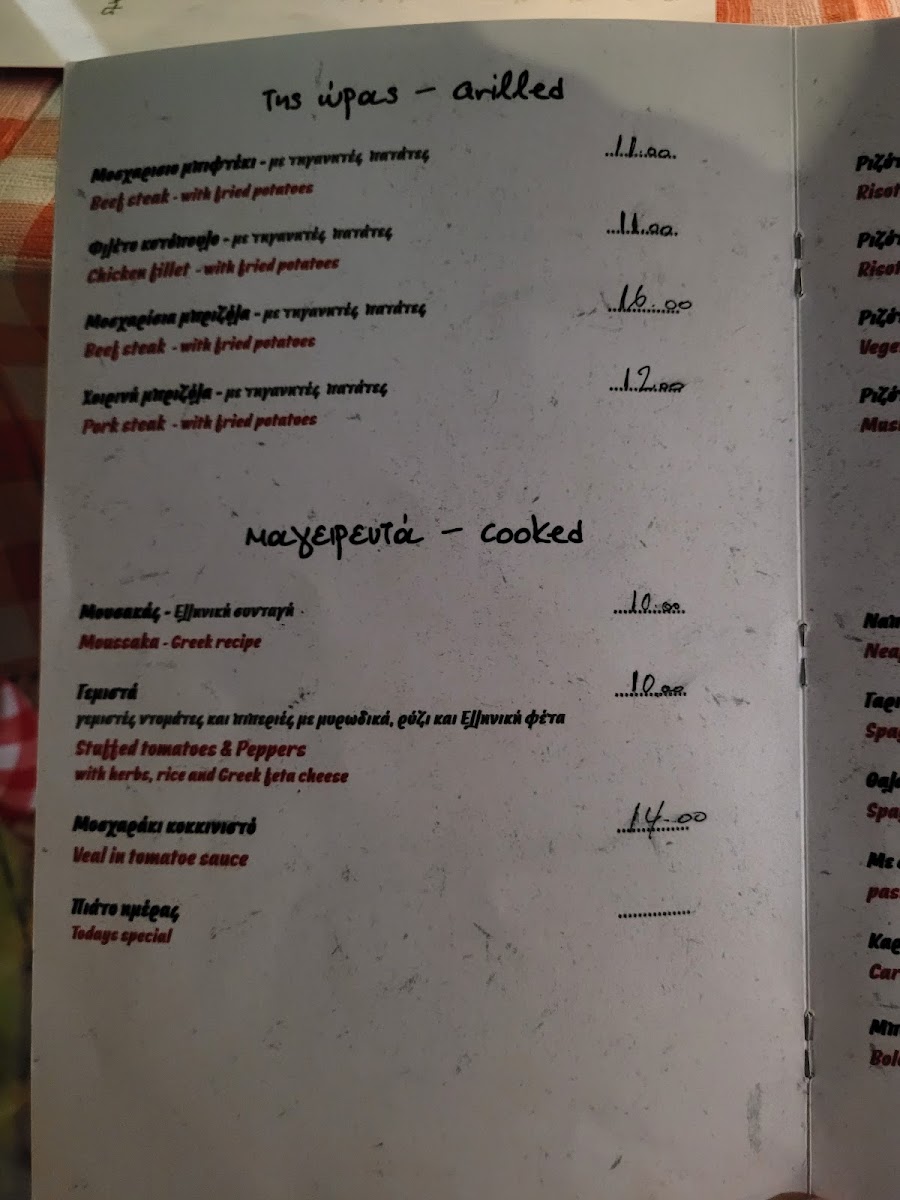 Της ώρας - Grilled
Μοσχαρισιο μπιφτέκι - με τηγανητές πατάτες ...11.00.
Beef steak - with fried potatoes
Φιλέτο κοτόπουλο - με τηγανητές πατάτες ...11.00.
Chicken fillet - with fried potatoes
Μοσχαρίσια μπριζόλα - με τηγανητές πατάτες ...16.00
Beef steak - with fried potatoes
Χοιρινή μπριζόλα - με τηγανητές πατάτες ...12.00
Pork steak - with fried potatoes
Μαγειρευτά - Cooked
Μουσακάς - Ελληνική συνταγή ....10.00.
Moussaka - Greek recipe
Γεμιστά ....10.00.
γεμιστές ντομάτες και πιπεριές με μυρωδικά, ρύζι και Ελληνική φέτα
Stuffed tomatoes & Peppers
with herbs, rice and Greek feta cheese
Μοσχαράκι κοκκινιστό 14.00
Veal in tomatoe sauce
Πιάτο ημέρας ..............
Todays special
Ριζό
Risot
Ριζό
Risot
Ριζό
Vege
Ριζό
Mus
Nea
Γαρ
Spa
Θαλ
Spa
Με
pas
Καρ
Car
Μπ
Bol